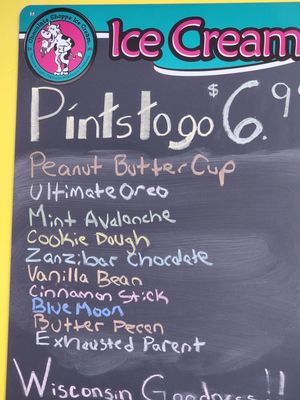 Chocolate Shoppe Ice Cream
Ice Cream
Pints to go $6.99
Peanut Butter Cup
Ultimate Oreo
Mint Avalanche
Cookie Dough
Zanzibar Chocolate
Vanilla Bean
Cinnamon Stick
Blue Moon
Butter Pecan
Exhausted Parent
Wisconsin Goodness!!